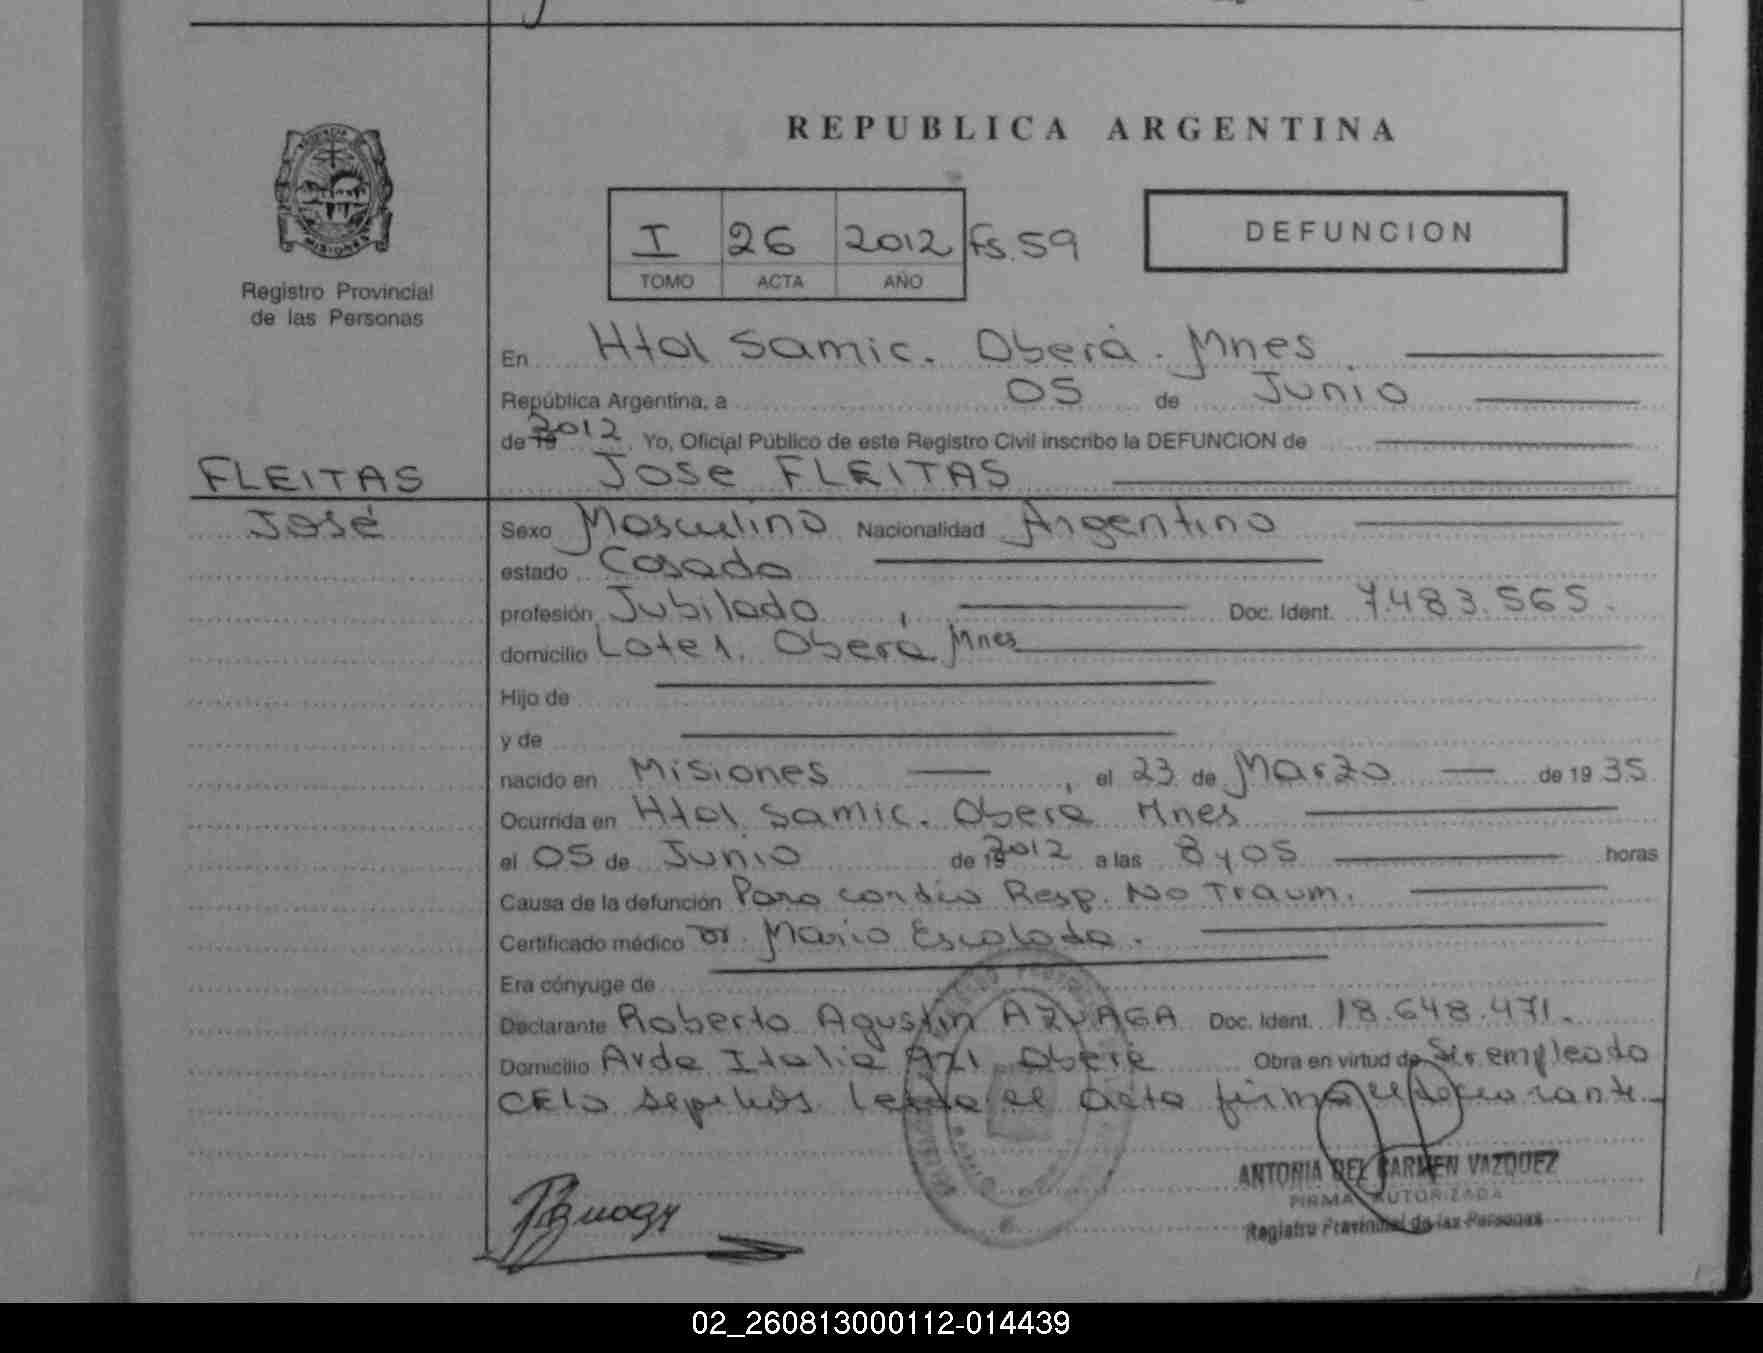 REPUBLICA ARGENTINA
I 26 2012 Fs. 59
TOMO ACTA AÑO
DEFUNCION
MISIONES
Registro Provincial
de las Personas
En Htal Samic. Oberá. Mnes
República Argentina, a 05 de Junio
de 19 2012. Yo, Oficial Público de este Registro Civil inscribo la DEFUNCION de
FLEITAS
José
Jose FLEITAS
Sexo Masculino Nacionalidad Argentino
estado Casado
profesión Jubilado, Doc. Ident. 7.483.565.
domicilio Lote 1. Oberá Mnes
Hijo de
y de
nacido en Misiones, el 23 de Marzo de 19 35
Ocurrida en Htal Samic. Obera Mnes
el 05 de Junio de 19 2012 a las 8 y 05 horas
Causa de la defunción Paro cardio Resp. No Traum.
Certificado médico Dr. Mario Escalada.
Era cónyuge de
Declarante Roberto Agustin AZUAGA Doc. Ident. 18.648.471.
Domicilio Avda Italia 921 Obera Obra en virtud de Ser empleado
CELO sepelios. Leida el acta firma el declarante.
ANTONIA DEL CARMEN VAZQUEZ
FIRMA AUTORIZADA
Registro Provincial de las Personas
02_260813000112-014439